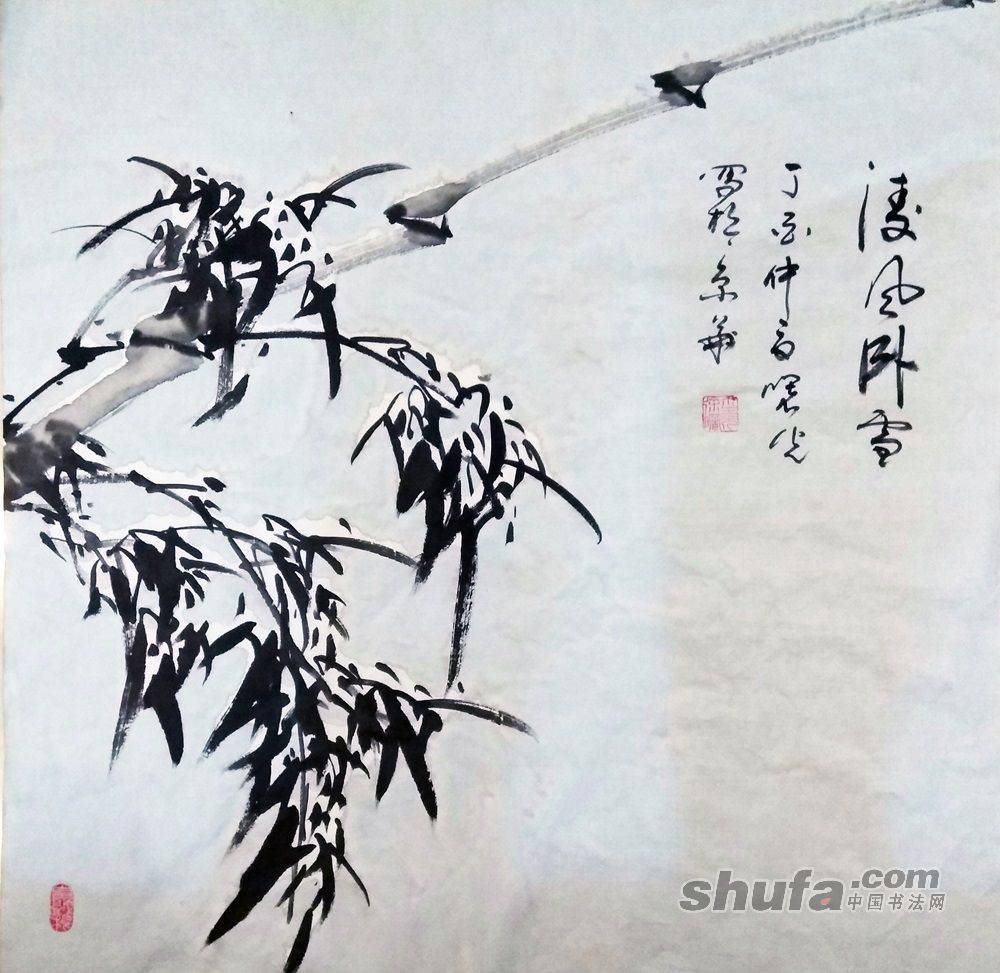 凌风卧雪
丁酉仲春曙光
写于京华
shufa.com
中国书法网